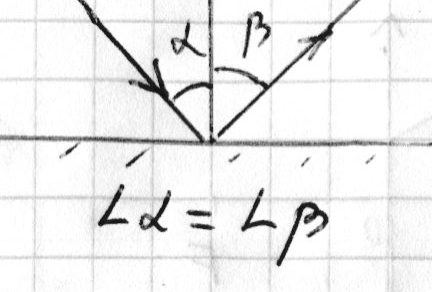 α β
∠α = ∠β